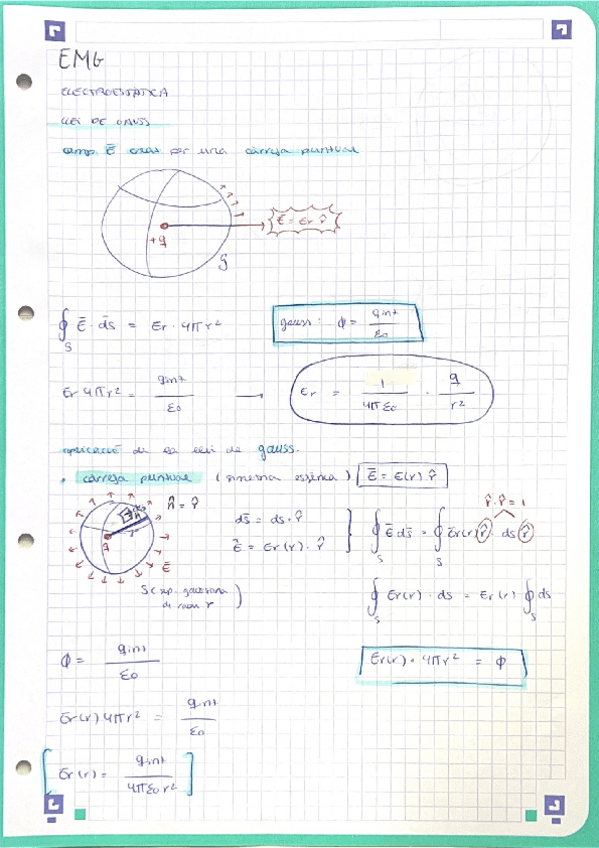 EMG
ELECTROESTÀTICA
LLEI DE GAUSS
camp E̅ creat per una càrrega puntual
E̅ = Er r̂
+q
S
∮_S E̅ · ds̅ = Er · 4πr²
gauss: ϕ = qint / ε0
Er 4πr² = qint / ε0 → Er = 1 / 4πε0 · q / r²
aplicació de la llei de gauss.
· càrrega puntual (simetria esfèrica) E̅ = E(r) r̂
n̂ = r̂
r̂ · r̂ = 1
ds̅ = ds · r̂
E̅ = Er(r) · r̂
∮_S E̅ ds̅ = ∮_S Er(r) r̂ · ds r̂
q
E̅
S (sup. gaussiana de radi r)
∮_S Er(r) · ds = Er(r) ∮_S ds
ϕ = qint / ε0
Er(r) · 4πr² = ϕ
Er(r) 4πr² = qint / ε0
Er(r) = qint / 4πε0 r²